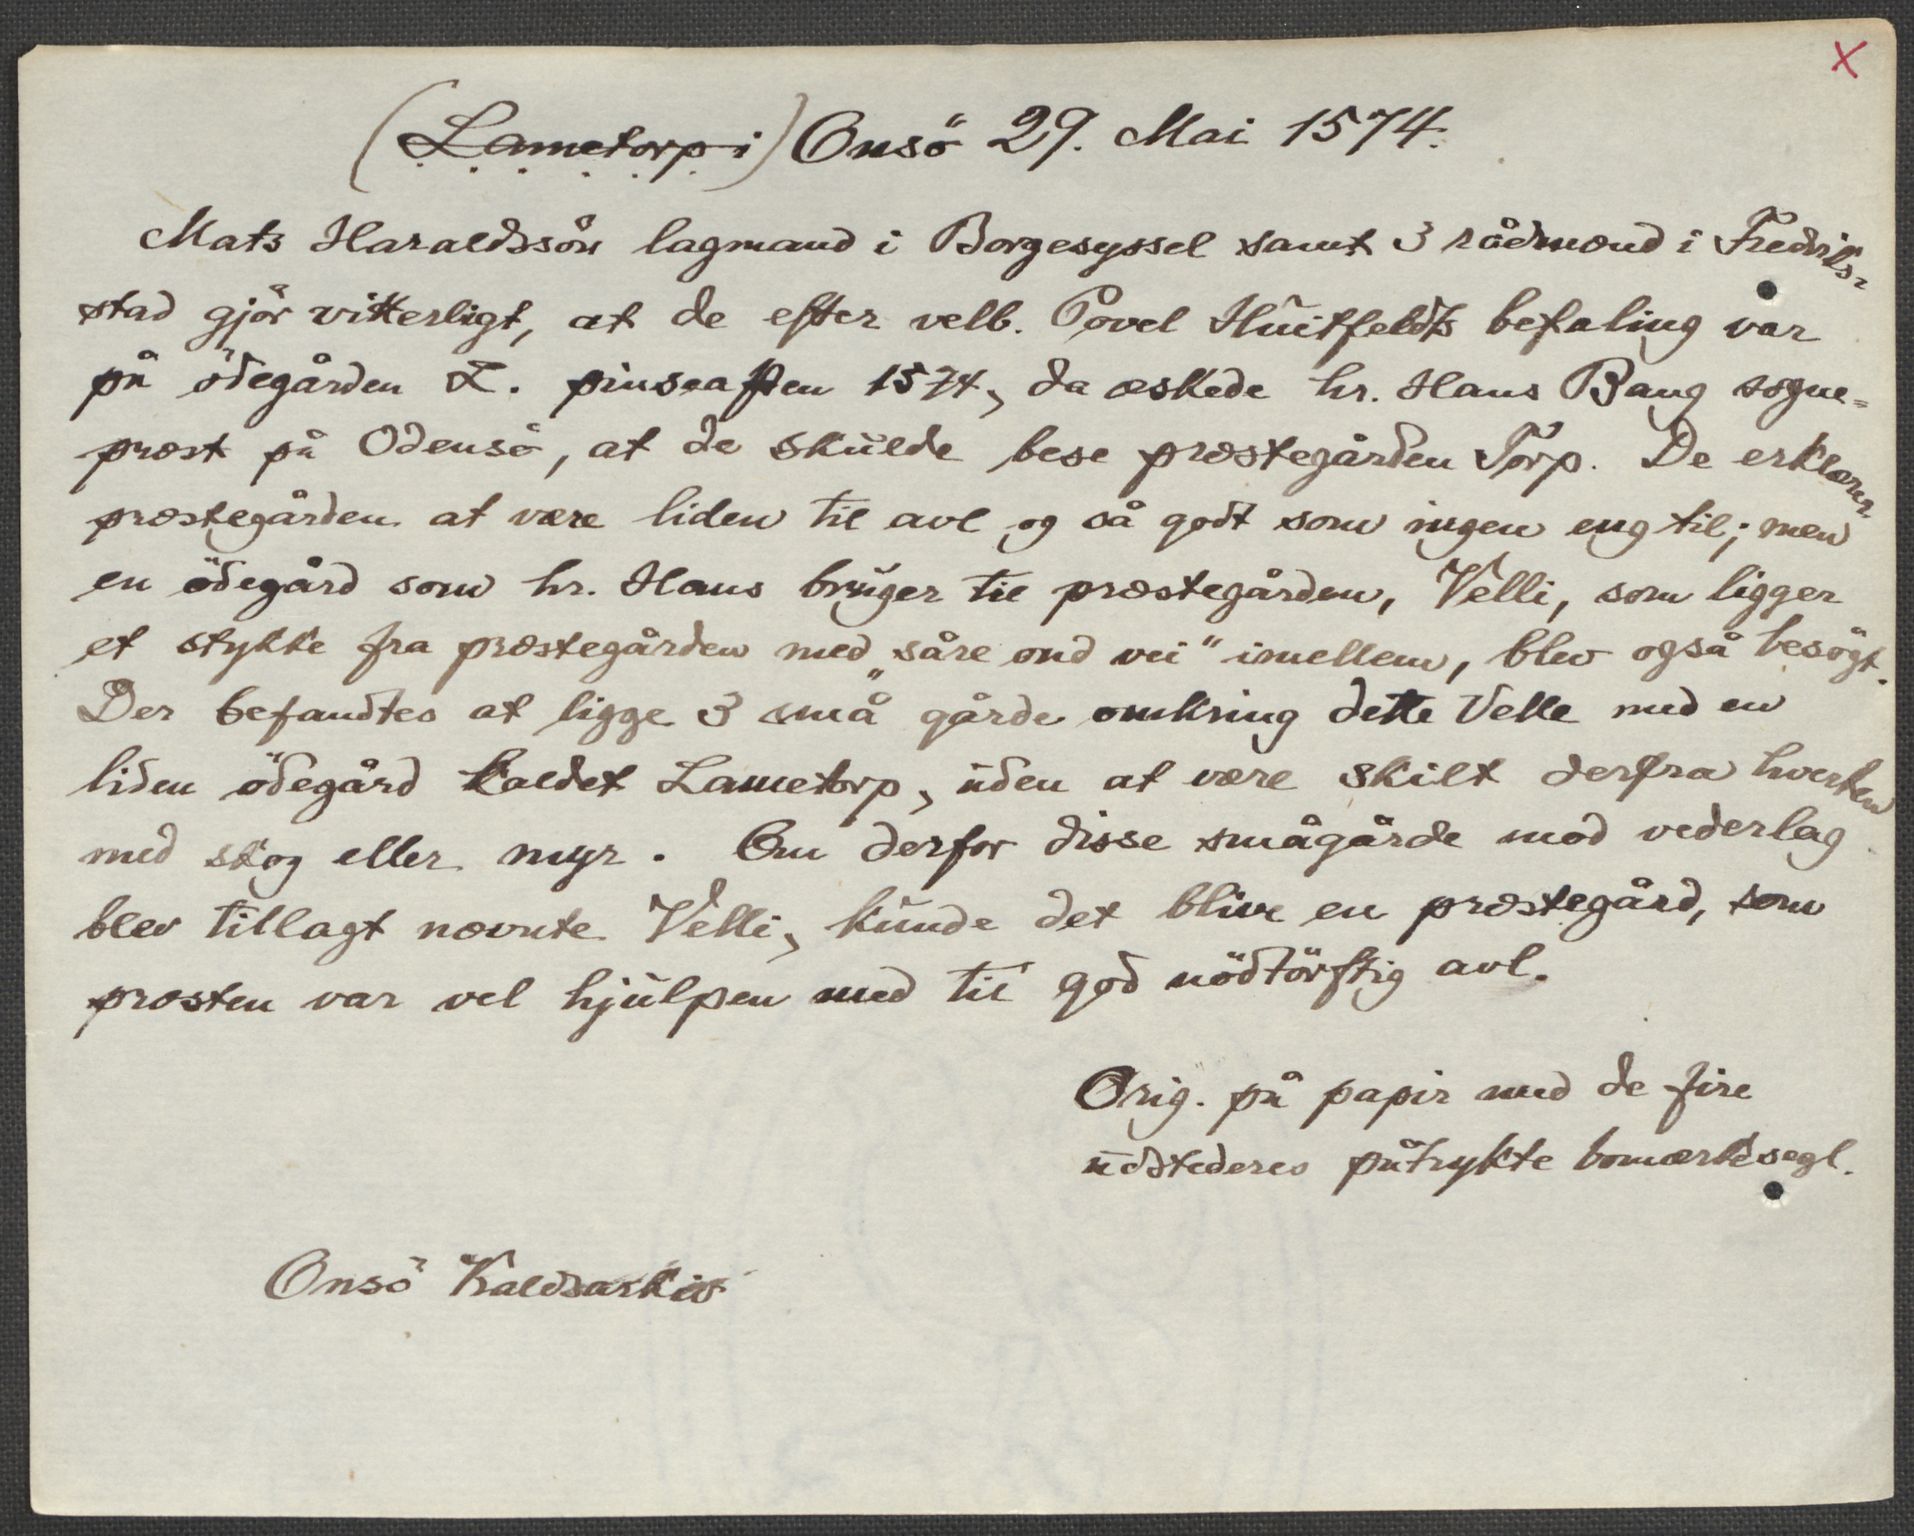 X
(Lametorp i) Onsö 29. Mai 1574.
Mats Haraldssön lagmand i Borgesyssel samt 3 rådmænd i Fredriks-
stad gjör vitterligt, at de efter velb. Povel Huitfeldts befaling var
på ödegården L. pinseaften 1574, da æskede hr. Hans Bang sogne-
præst på Odensö, at de skulde bese præstegården Torp. De erklærer
præstegården at være liden til avl og så godt som ingen eng til; men
en ödegård som hr. Hans bruger til præstegården, Velli, som ligger
et stykke fra præstegården med „såre ond vei" imellem, blev også besögt.
Der befandtes at ligge 3 små gårde omkring dette Velle med en
liden ödegård kaldet Lametorp, uden at være skilt derfra hverken
med skog eller myr. Om derfor disse smågårde mod vederlag
blev tillagt nævnte Velli, kunde det blive en præstegård, som
præsten var vel hjulpen med til god nödtörftig avl.
Orig. på papir med de fire
udstederes påtrykte bomærkesegl.
Onsö Kaldsarkiv